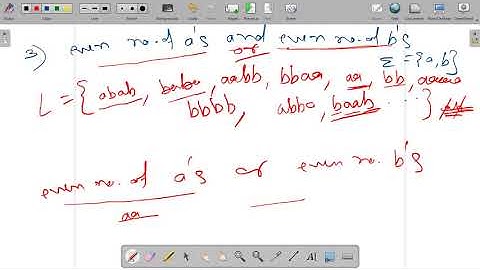 3) even no. of a's and even no. of b's
or
Σ = {a,b}
L = { abab, baba, aabb, bbaa, aa, bb, aaaa
bbbb, abba, baab ... }
even no. of a's or even no. b's
aa